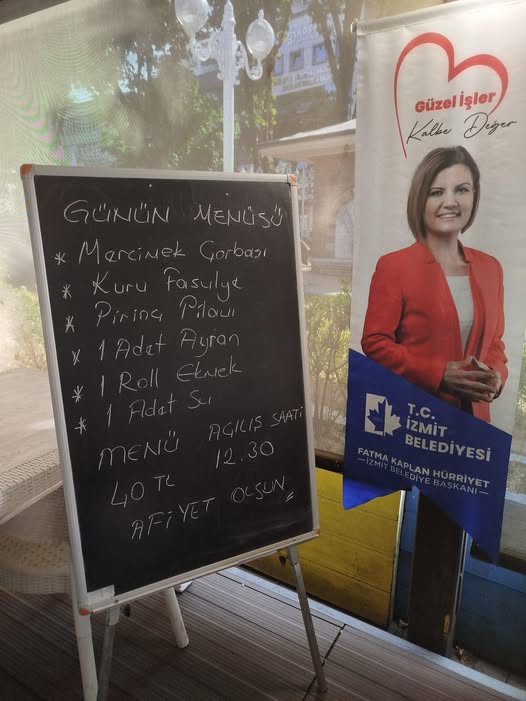 GÜNÜN MENÜSÜ
* Mercimek Çorbası
* Kuru Fasulye
* Pirinç Pilavı
* 1 Adet Ayran
* 1 Roll Ekmek
* 1 Adet Su
MENÜ AÇILIŞ SAATİ
40 TL 12.30
AFİYET OLSUN
Güzel İşler
Kalbe Değer
T.C.
İZMİT
BELEDİYESİ
FATMA KAPLAN HÜRRİYET
İZMİT BELEDİYE BAŞKANI